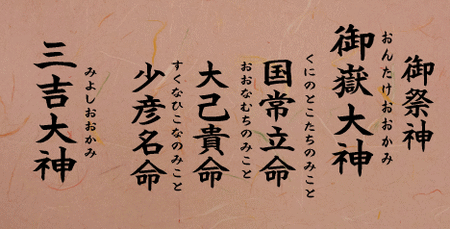 御祭神
おんたけおおかみ
御嶽大神
くにのとこたちのみこと
国常立命
おおなむちのみこと
大己貴命
すくなひこなのみこと
少彦名命
みよしおおかみ
三吉大神